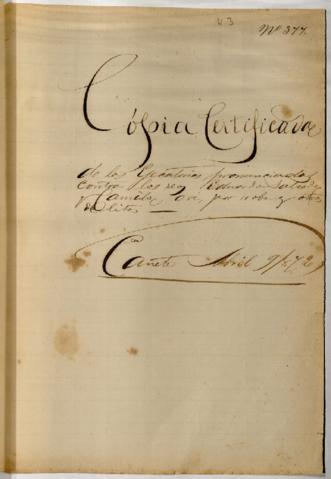 43
Nº 377.
Cópia Certificada
de las Ejecutorias pronunciadas
contra los reos Eduardo
y Camilo por robo y otros
delitos
Cañete Abril 9/72